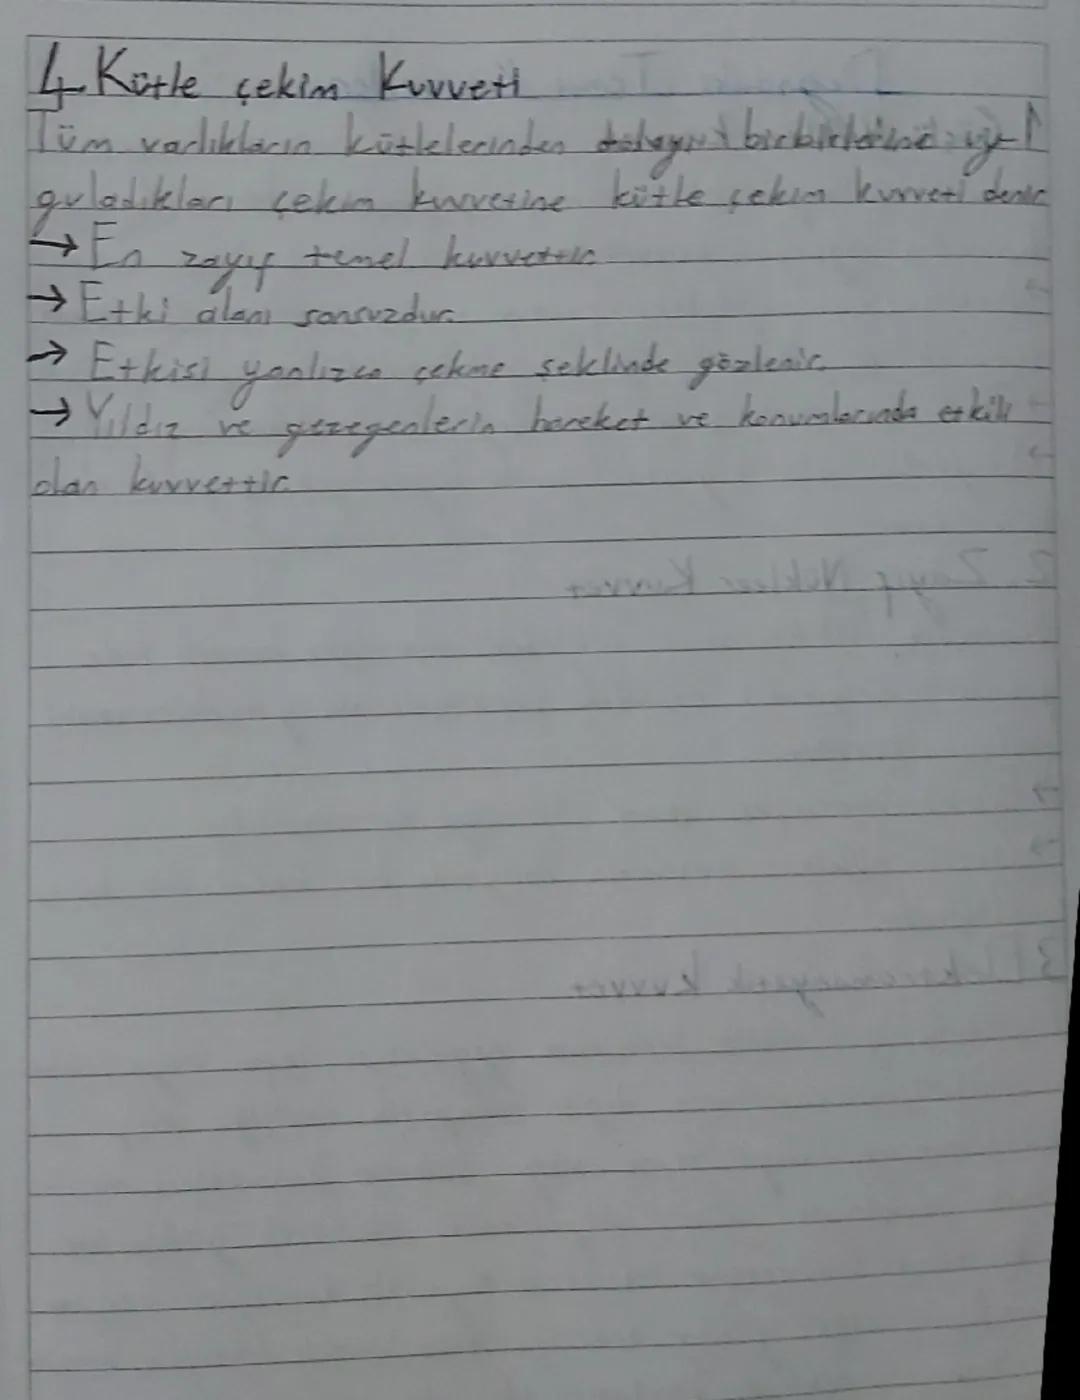 4. Kütle çekim Kuvveti
Tüm varlıkların kütlelerinden dolayı birbirlerine uy-
guladıkları çekim kuvvetine kütle çekim kuvveti denir
→ En zayıf temel kuvvettir.
→ Etki alanı sonsuzdur.
→ Etkisi yanlızca çekme şeklinde gözlenir.
→ Yıldız ve gezegenlerin hareket ve konumlarında etkili
olan kuvvettir.